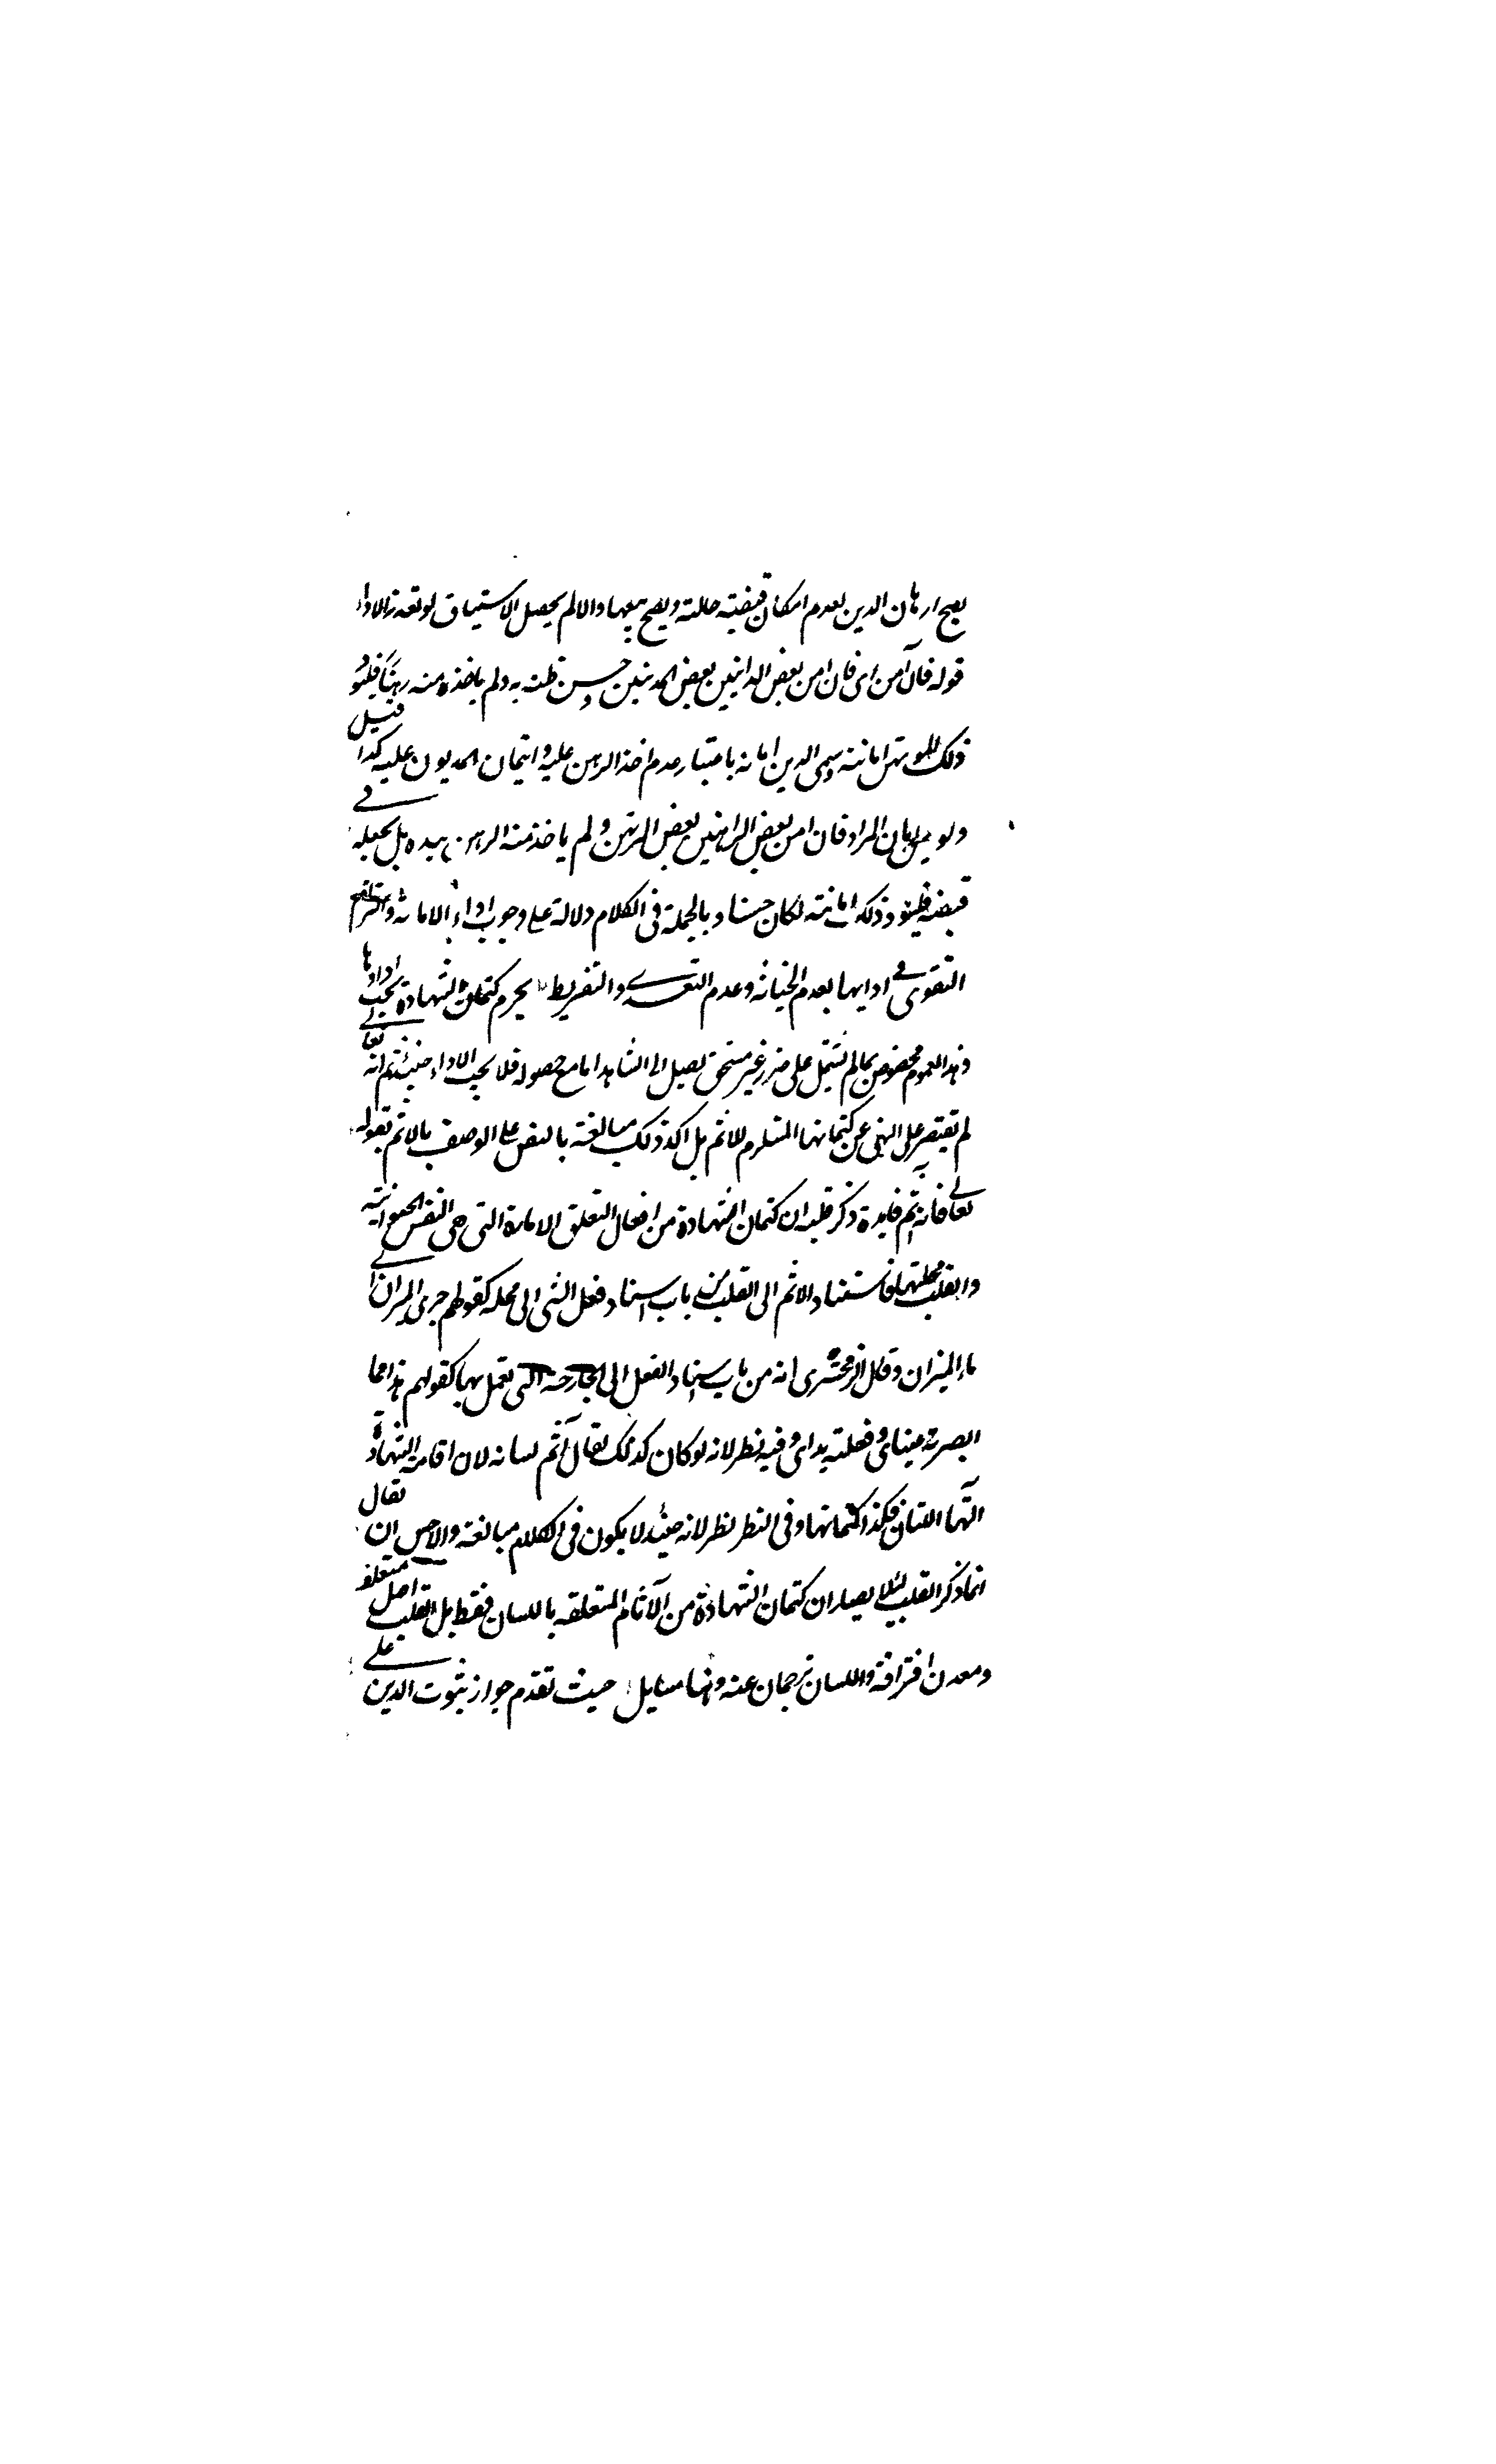 يصح ارهان الدين لعدم امكان قبضته حالته ويصح بيعها والا لم يحصل الاستيثاق لوقعة الاداء
قوله فان امن اى فان امن بعض الداينين بعض المدينين وحسن ظنه به ولم ياخذ منه رهنا فليؤد
ذلك المؤتمن امانته وسمى الدين امانة باعتبار عدم اخذ الرهن عليه وايتمان المديون عليه كذا قيل
ولو قيل بان المراد فان امن بعض الراهنين بعض المرتهن ولم ياخذ منه الرهن بيده بل يجعله فى
قبضه فليؤد ذلك امانته لكان حسنا وبالجملة فى الكلام دلالة على وجوب اداء الامانة
التقوى فى ادايها بعدم الخيانة وعدم التعدى والتفريط يحرم كتمان الشهادة يجب اداؤها
وهذا العموم مخصوص بما لم يشتمل على ضرر غير مستحق يصل الى الشاهد اما مع حصوله فلا يجب الاداء حينئذ ثم انه تعالى
لم يقتصر على النهى عن كتمانها المستلزم للاثم بل اكد ذلك مبالغة بالنص على الوصف بالاثم بقوله
تعالى فانه آثم فايدة ذكر قلبه ان كتمان الشهادة من افعال القلب الامارة التى هى النفس الحيوانية
والقلب محلتها فاستناد الاثم الى القلب من باب اسناد فعل الشئ الى محله كقولهم جرى الميزان اى
ماء الميزان وقال الزمخشرى انه من باب اسناد الفعل الى الجارحة التى تعمل بها كقولهم هذا مما
ابصرته عيناى وفعلته يداى وفيه نظر لانه لو كان كذلك لقال آثم لسانه لان اقامة الشهادة
آلتها اللسان فكذا كتمانها وفى النظر نظر لانه حينئذ لا يكون فى الكلام مبالغة والاحسن ان يقال
انما ذكر القلب لئلا يصار ان كتمان الشهادة من الآثام المتعلقه باللسان فقط بل القلب اصل متعلقه
ومعدن اقترافه واللسان ترجمان عنه وهنا مسايل حيث تقدم جواز ثبوت الدين على